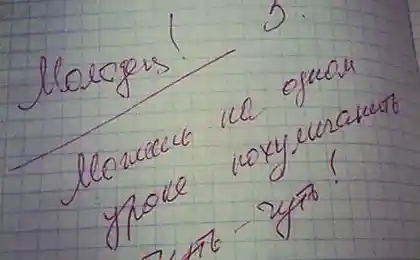 5.
Молодец!
Можешь на одном
уроке похулиганить
чуть-чуть!